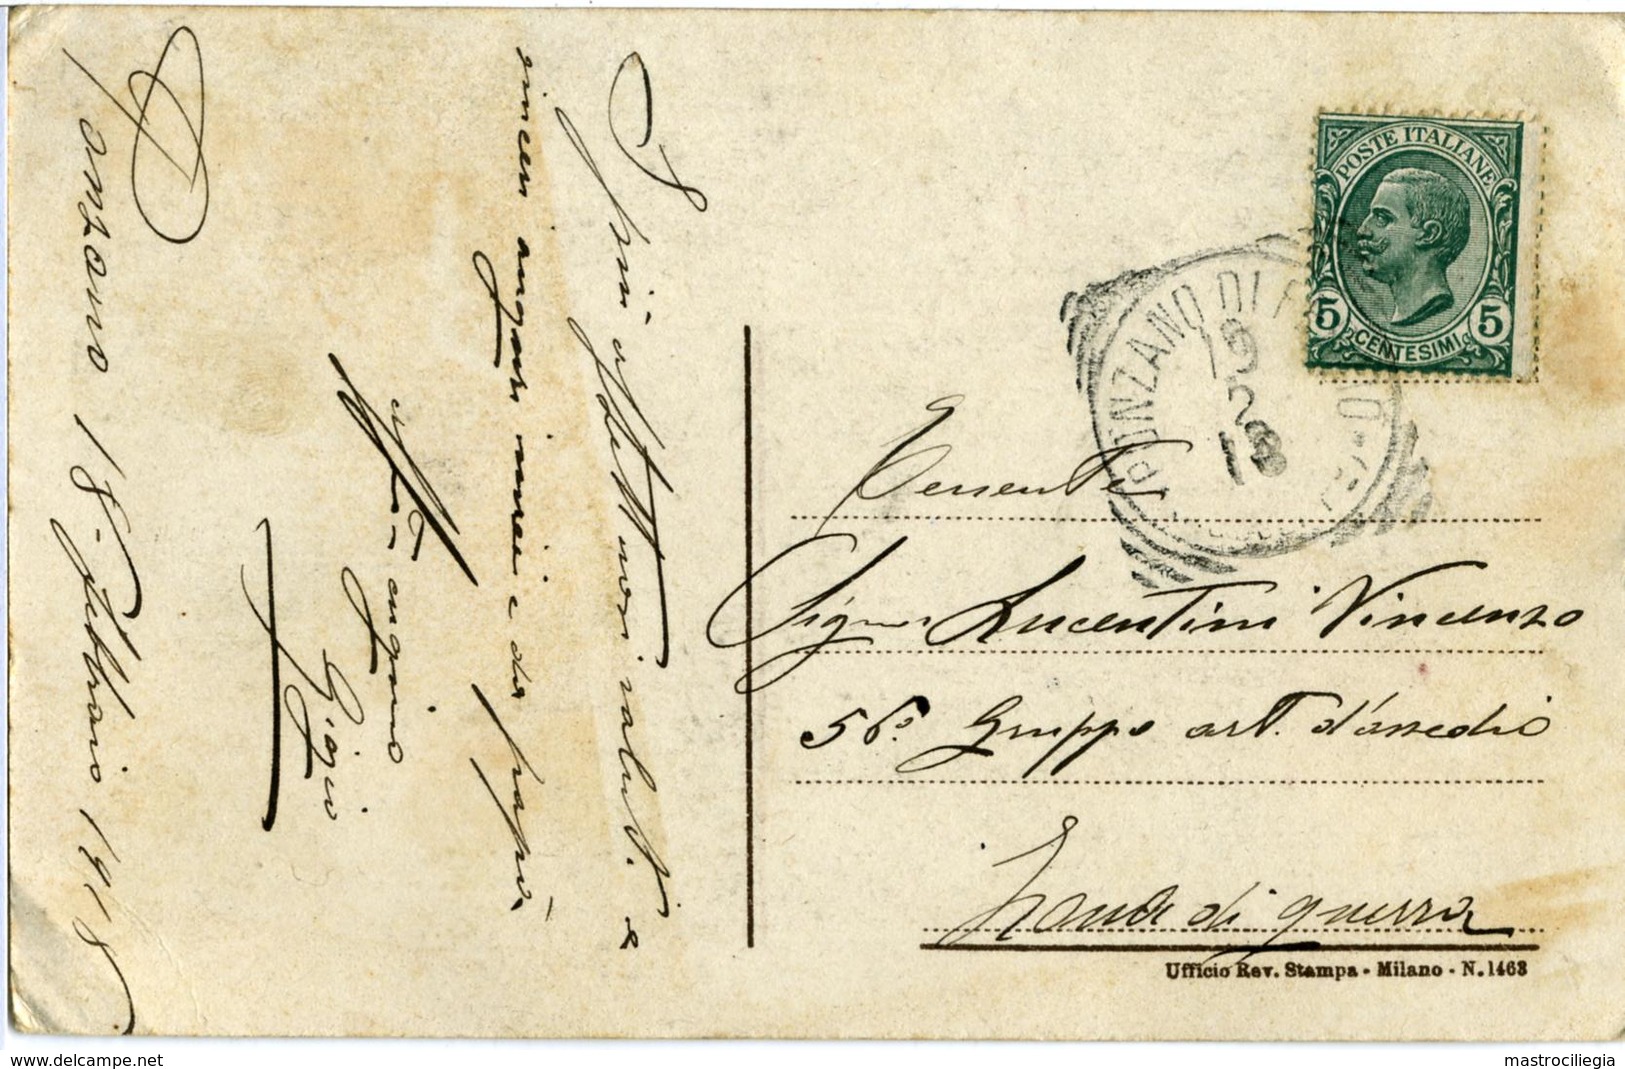 Ponzano 18-Febbraio 1918
I più affettuosi saluti. e
sinceri auguri miei e da papà
cugino
Gigio
POSTE ITALIANE
5 CENTESIMI 5
PONZANO DI F
19
2
18
Tenente
Signor Lucentini Vincenzo
56° Gruppo art. d'assedio
Zona di guerra
Ufficio Rev. Stampa - Milano - N. 1463
www.delcampe.net
mastrociliegia